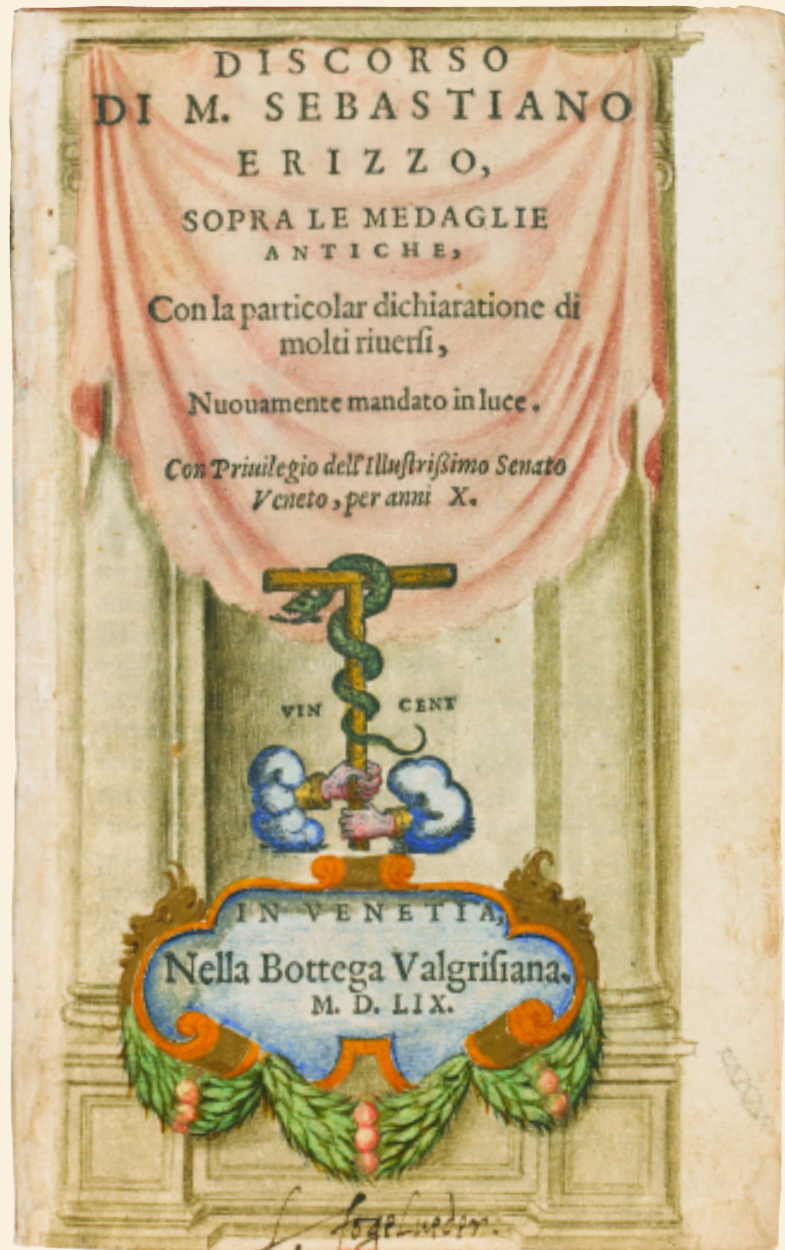 DISCORSO
DI M. SEBASTIANO
ERIZZO,
SOPRA LE MEDAGLIE
ANTICHE,
Con la particolar dichiaratione di
molti riuerſi,
Nuouamente mandato in luce.
Con Priuilegio dell'Illuſtriſſimo Senato
Veneto, per anni X.
VIN CENT
IN VENETIA,
Nella Bottega Valgriſiana.
M. D. LIX.